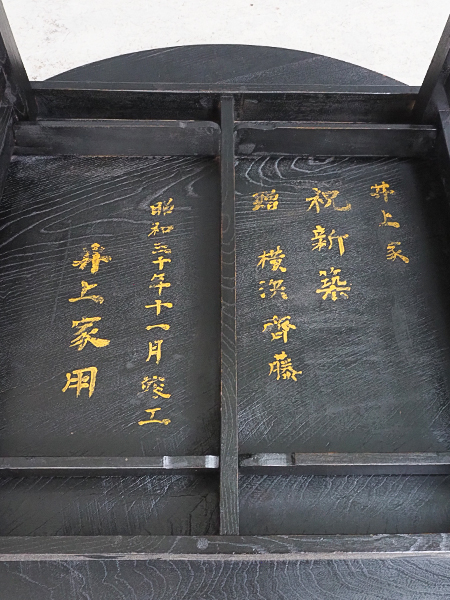 井上家
祝新築
贈 横浜 齊藤
昭和三十年十一月竣工
井上家用